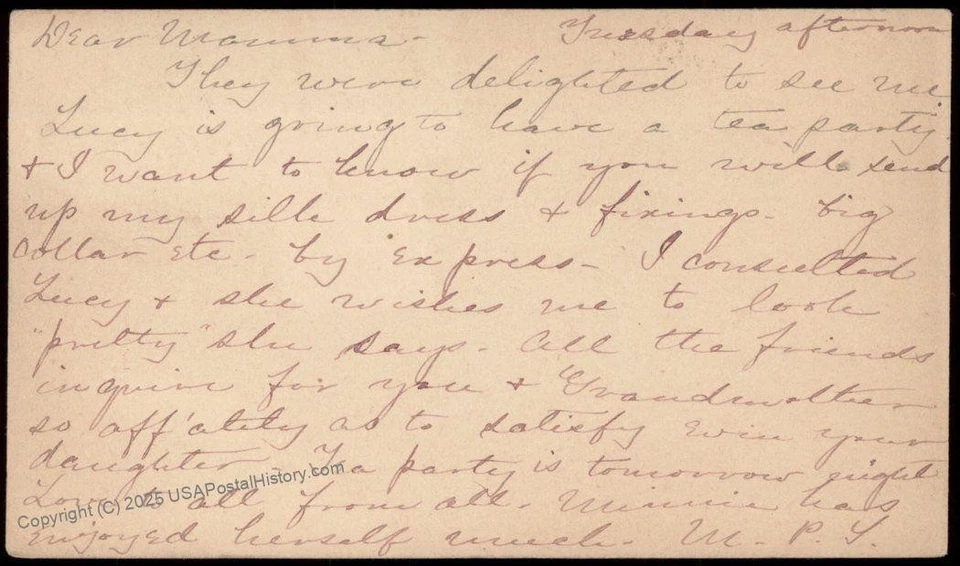 Dear Mamma - Tuesday afternoon
They were delighted to see me
Lucy is going to have a tea party
& I want to know if you will send
up my silk dress & fixings - big
collar etc - by express - I consulted
Lucy & she wishes me to look
"pretty" she says - All the friends
inquire for you & "Grandmother
so aff'ately as to satisfy even your
daughter Tea party is tomorrow night
Love to all from all - Minnie has
enjoyed herself much - M. P. S.
Copyright (C) 2025 USAPostalHistory.com